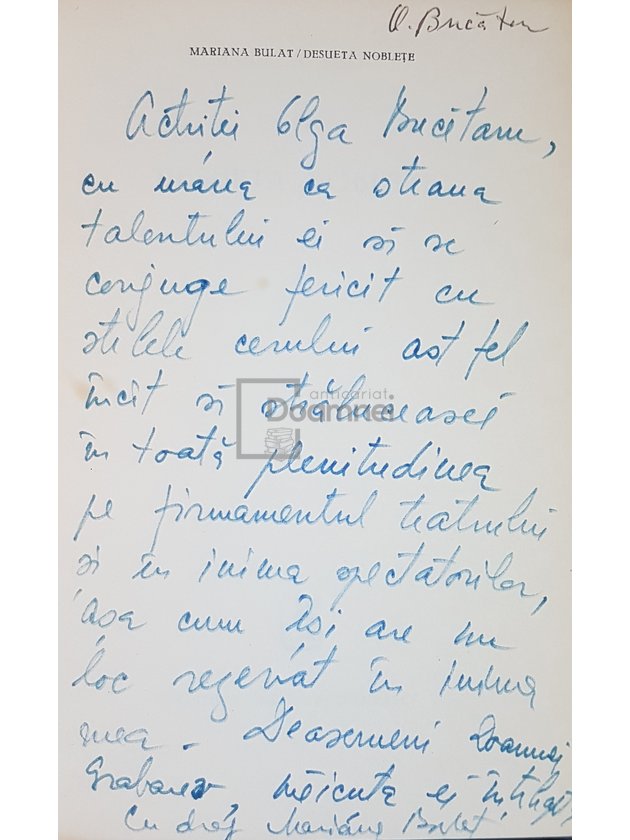 O. Bucătaru
MARIANA BULAT / DESUETA NOBLEȚE
Actriței Olga Bucătaru,
cu urarea ca steaua
talentului ei să se
conjuge fericit cu
stelele cerului astfel
încît să strălucească
anticariat
Doamnei
în toată plenitudinea
pe firmamentul teatrului
și în inima spectatorilor,
așa cum își are un
loc rezervat în inima
mea. Deasemeni Doamnei
măicuța ei
Cu drag Mariana Bulat